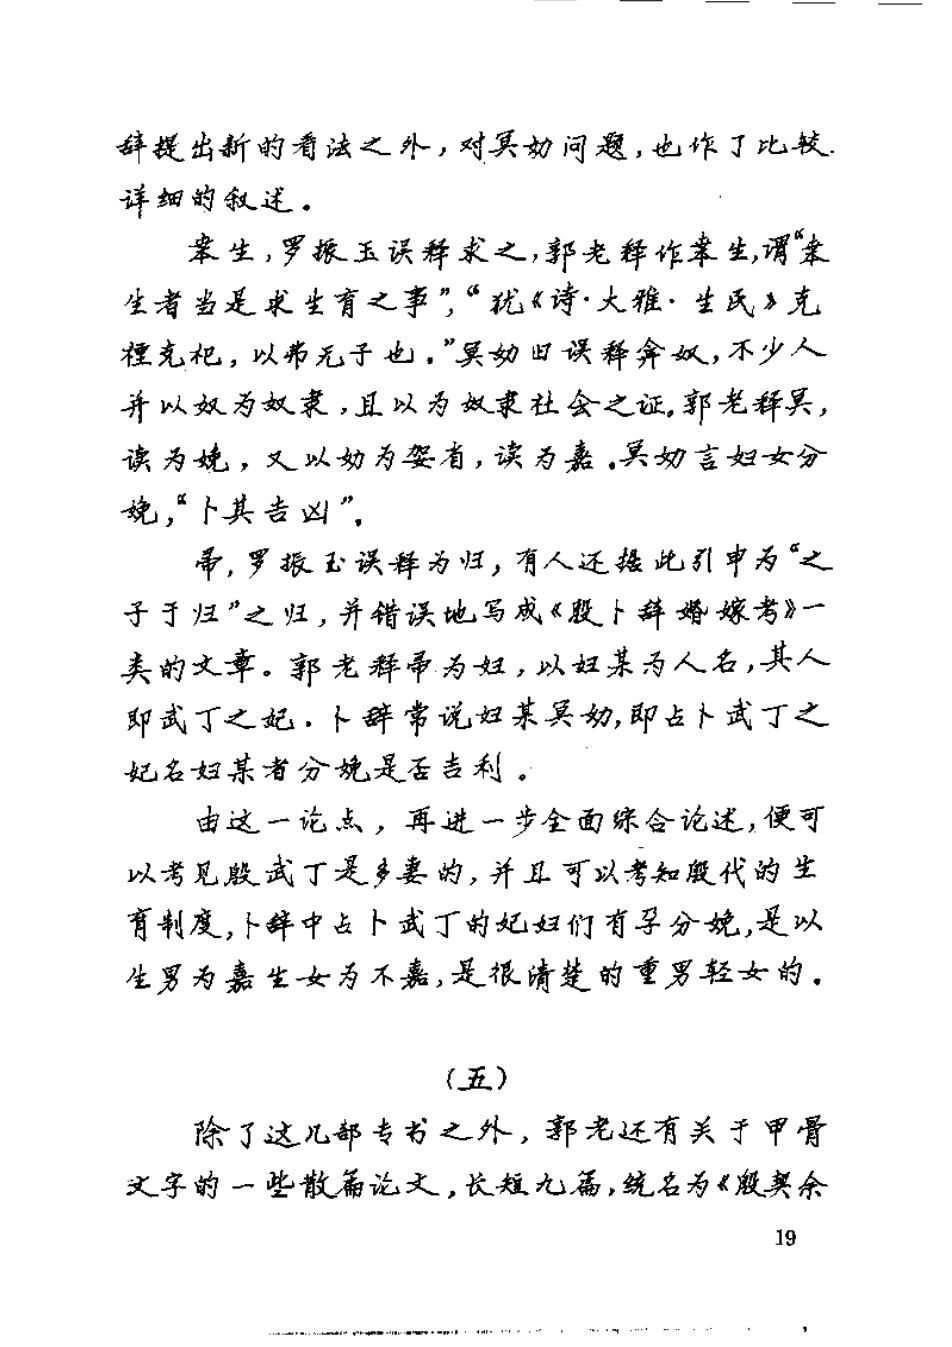 辞提出新的看法之外，对冥㚸问题，也作了比较
详细的叙述。
㞷生，罗振玉误释求之，郭老释作㞷生，谓“㞷
生者当是求生育之事”，“犹《诗·大雅·生民》克
禋克祀，以弗无子也。”冥㚸旧误释弇奴，不少人
并以奴为奴隶，且以为奴隶社会之证。郭老释冥，
读为娩，又以㚸为娿省，读为嘉。冥㚸言妇女分
娩，“卜其吉凶”。
帚，罗振玉误释为归，有人还据此引申为“之
子于归”之归，并错误地写成《殷卜辞婚嫁考》一
类的文章。郭老释帚为妇，以妇某为人名，其人
即武丁之妃。卜辞常说妇某冥㚸，即占卜武丁之
妃名妇某者分娩是否吉利。
由这一论点，再进一步全面综合论述，便可
以考见殷武丁是多妻的，并且可以考知殷代的生
育制度，卜辞中占卜武丁的妃妇们有孕分娩，是以
生男为嘉生女为不嘉，是很清楚的重男轻女的。
（五）
除了这几部专书之外，郭老还有关于甲骨
文字的一些散篇论文，长短九篇，统名为《殷契余
19